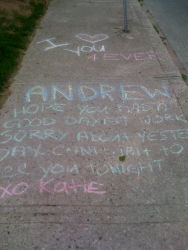 I ♡ you
4 EVER
ANDREW
I HOPE YOU HAD A
GOOD DAY AT WORK
SORRY ABOUT YESTER
DAY CAN'T WAIT TO
SEE YOU TONIGHT
XO KATIE